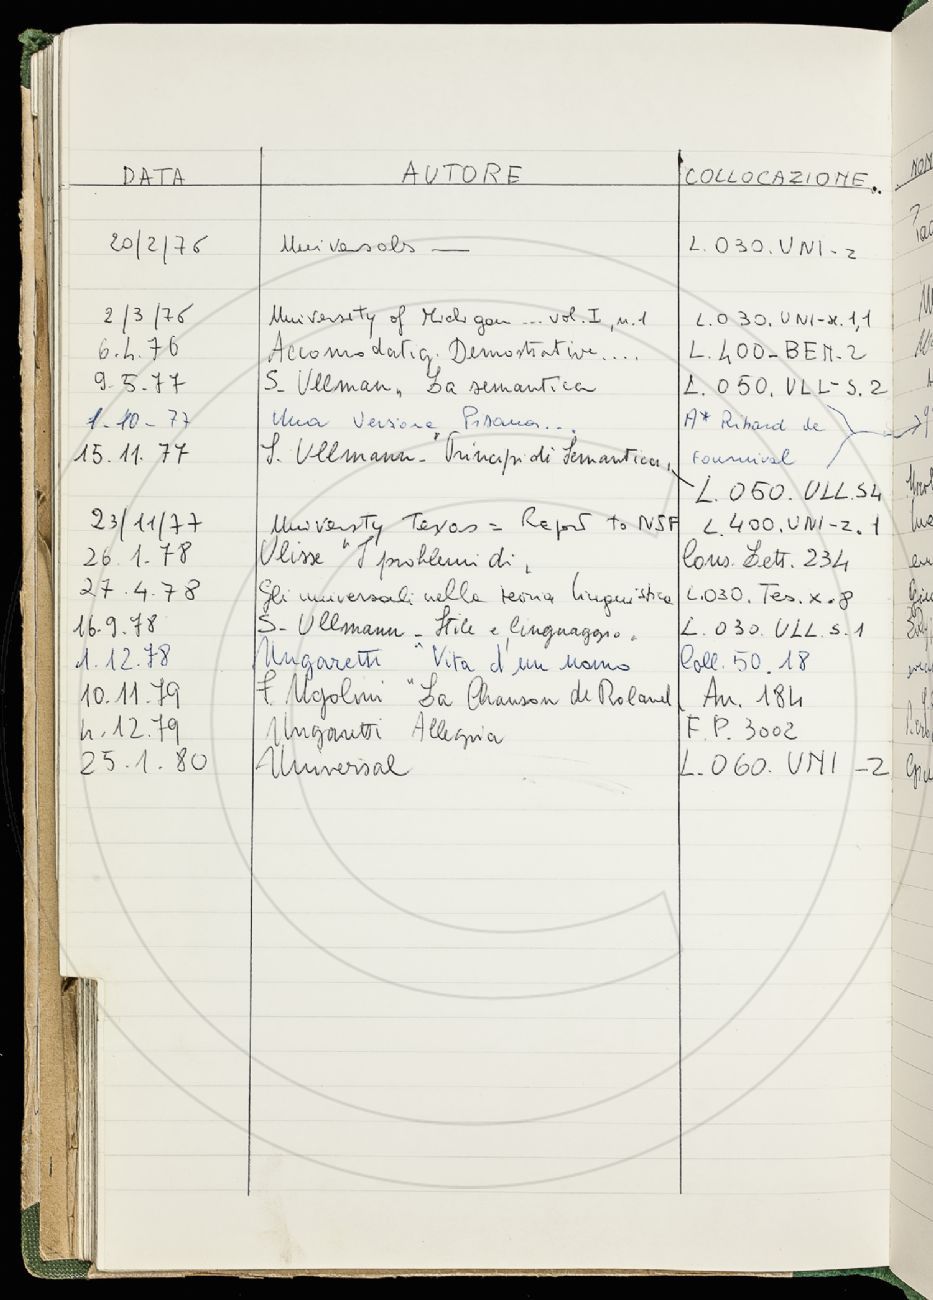 DATA AUTORE COLLOCAZIONE
20/2/76 Universals — L. 030. UNI-2
2/3/76 University of Michigan ... vol. I, n. 1 L. 030. UNI-x. 1,1
6.4.76 Accomodatig. Demostrative.... L. 400-BEN-2
9.5.77 S. Ullman, La semantica L. 050. ULL-S. 2
1-10-77 Una versione Pisana... A* Richard de
15.11.77 S. Ullmann - "Principi di Semantica, Fournival
L. 050. ULL.S4
23/11/77 University Texas = Report to NSF L. 400. UNI-z. 1
26.1.78 Ulisse "I problemi di, Cons. Lett. 234
27.4.78 Gli universali nella teoria linguistica L.030. Tes. x. 8
16.9.78 S. Ullmann - Stile e linguaggio. L. 030. ULL. s. 1
1.12.78 Ungaretti "Vita d'un uomo Coll. 50. 18
10.11.79 F. Ugolini "La Chanson de Roland An. 184
4.12.79 Ungaretti Allegria F.P. 3002
25.1.80 Universal L. 060. UNI -2